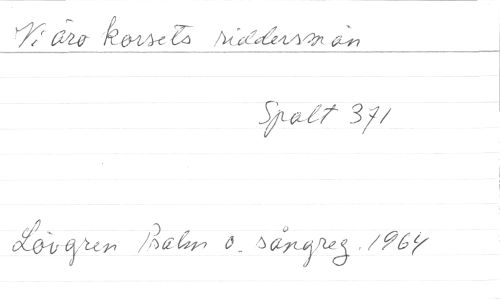 Vi äro korsets riddersmän
Spalt 371
Lövgren Psalm o. sångreg. 1964